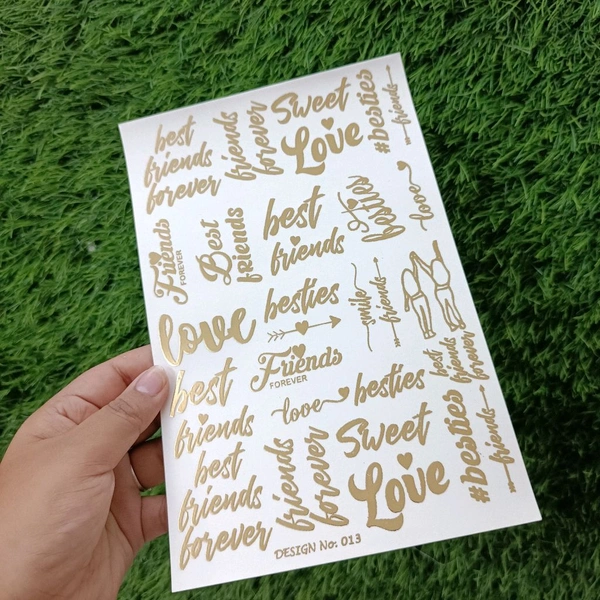 best
friends
forever
friends
forever
Sweet
Love
#besties
friends
Friends
FOREVER
Best
friends
best
friends
besties
love
love
besties
smile
friends
best
friends
Friends
FOREVER
love
besties
best
friends
forever
best
friends
forever
friends
forever
Sweet
Love
#besties
friends
DESIGN No. 013